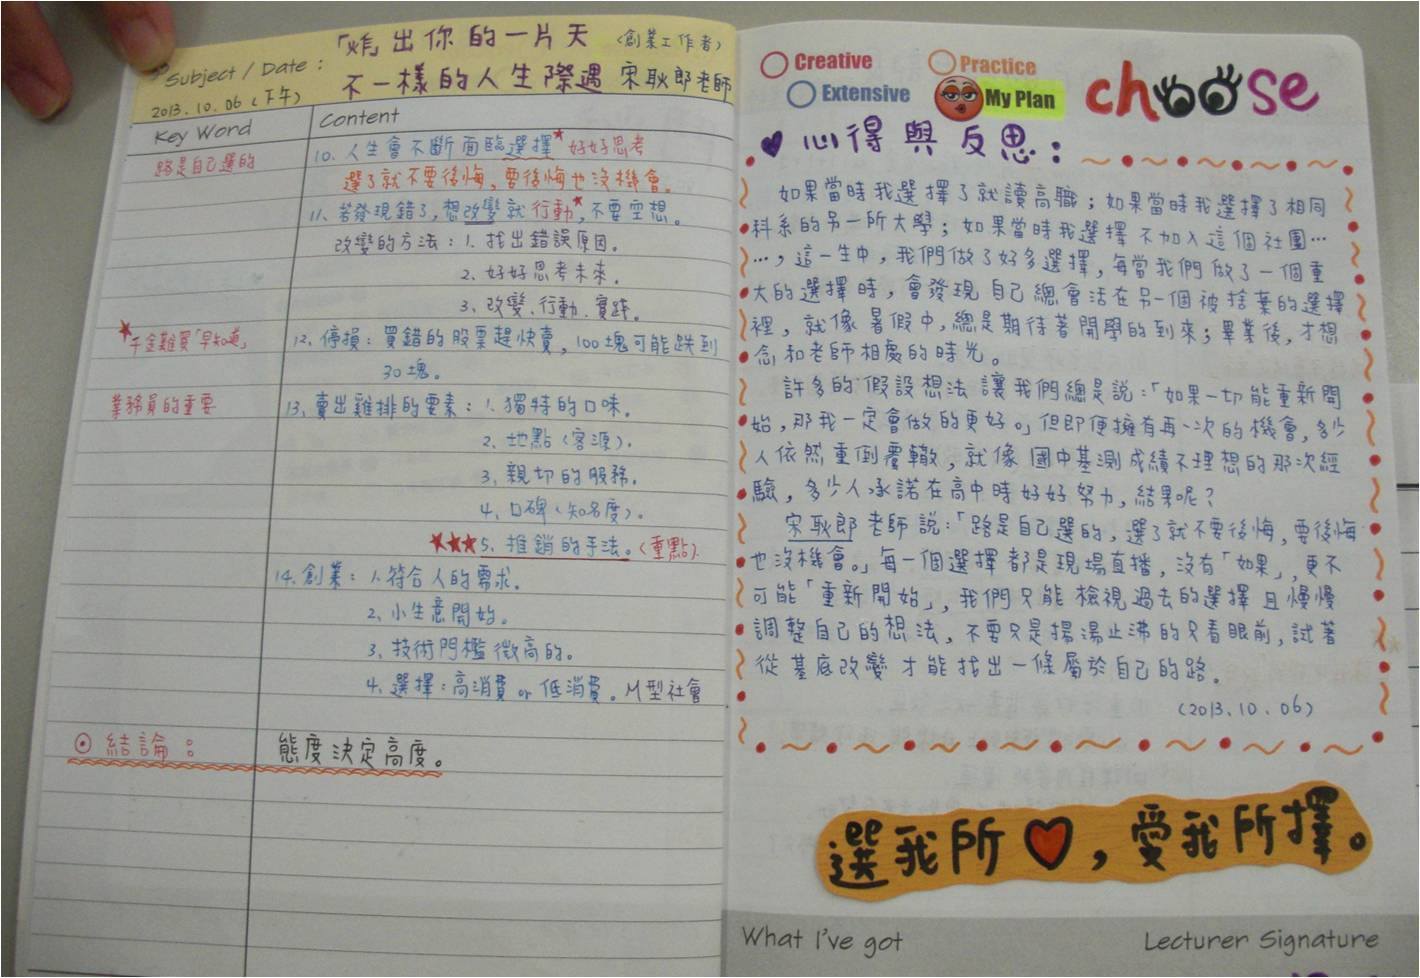 「炸」出你的一片天 (創業工作者)
Subject / Date :
不一樣的人生際遇 宋耿郎老師
2013.10.06(下午)
Key Word
Content
路是自己選的
10. 人生會不斷面臨選擇★好好思考
選了就不要後悔,要後悔也沒機會。
11. 若發現錯了,想改變就行動★,不要空想。
改變的方法:1. 找出錯誤原因。
2. 好好思考未來。
3. 改變、行動、實踐。
★千金難買「早知道」
12. 停損:買錯的股票趕快賣,100塊可能跌到
30塊。
業務員的重要
13. 賣出雞排的要素:1. 獨特的口味。
2. 地點(客源)。
3. 親切的服務。
4. 口碑(知名度)。
★★★5. 推銷的手法。(重點)
14. 創業:1. 符合人的需求。
2. 小生意開始。
3. 技術門檻微高的。
4. 選擇:高消費 or 低消費。M型社會
⊙ 結論:
態度決定高度。
Creative
Practice
Extensive
My Plan
choose
♥心得與反思:
如果當時我選擇了就讀高職;如果當時我選擇了相同
科系的另一所大學;如果當時我選擇不加入這個社團…
…,這一生中,我們做了好多選擇,每當我們做了一個重
大的選擇時,會發現自己總會活在另一個被捨棄的選擇
裡,就像暑假中,總是期待著開學的到來;畢業後,才想
念和老師相處的時光。
許多的假設想法讓我們總是說:「如果一切能重新開
始,那我一定會做的更好。」但即便擁有再一次的機會,多少
人依然重倒覆轍,就像國中基測成績不理想的那次經
驗,多少人承諾在高中時好好努力,結果呢?
宋耿郎老師說:「路是自己選的,選了就不要後悔,要後悔
也沒機會。」每一個選擇都是現場直播,沒有「如果」,更不
可能「重新開始」,我們只能檢視過去的選擇且慢慢
調整自己的想法,不要只是揚湯止沸的只看眼前,試著
從基底改變才能找出一條屬於自己的路。
(2013.10.06)
選我所♥,愛我所擇。
What I've got
Lecturer Signature